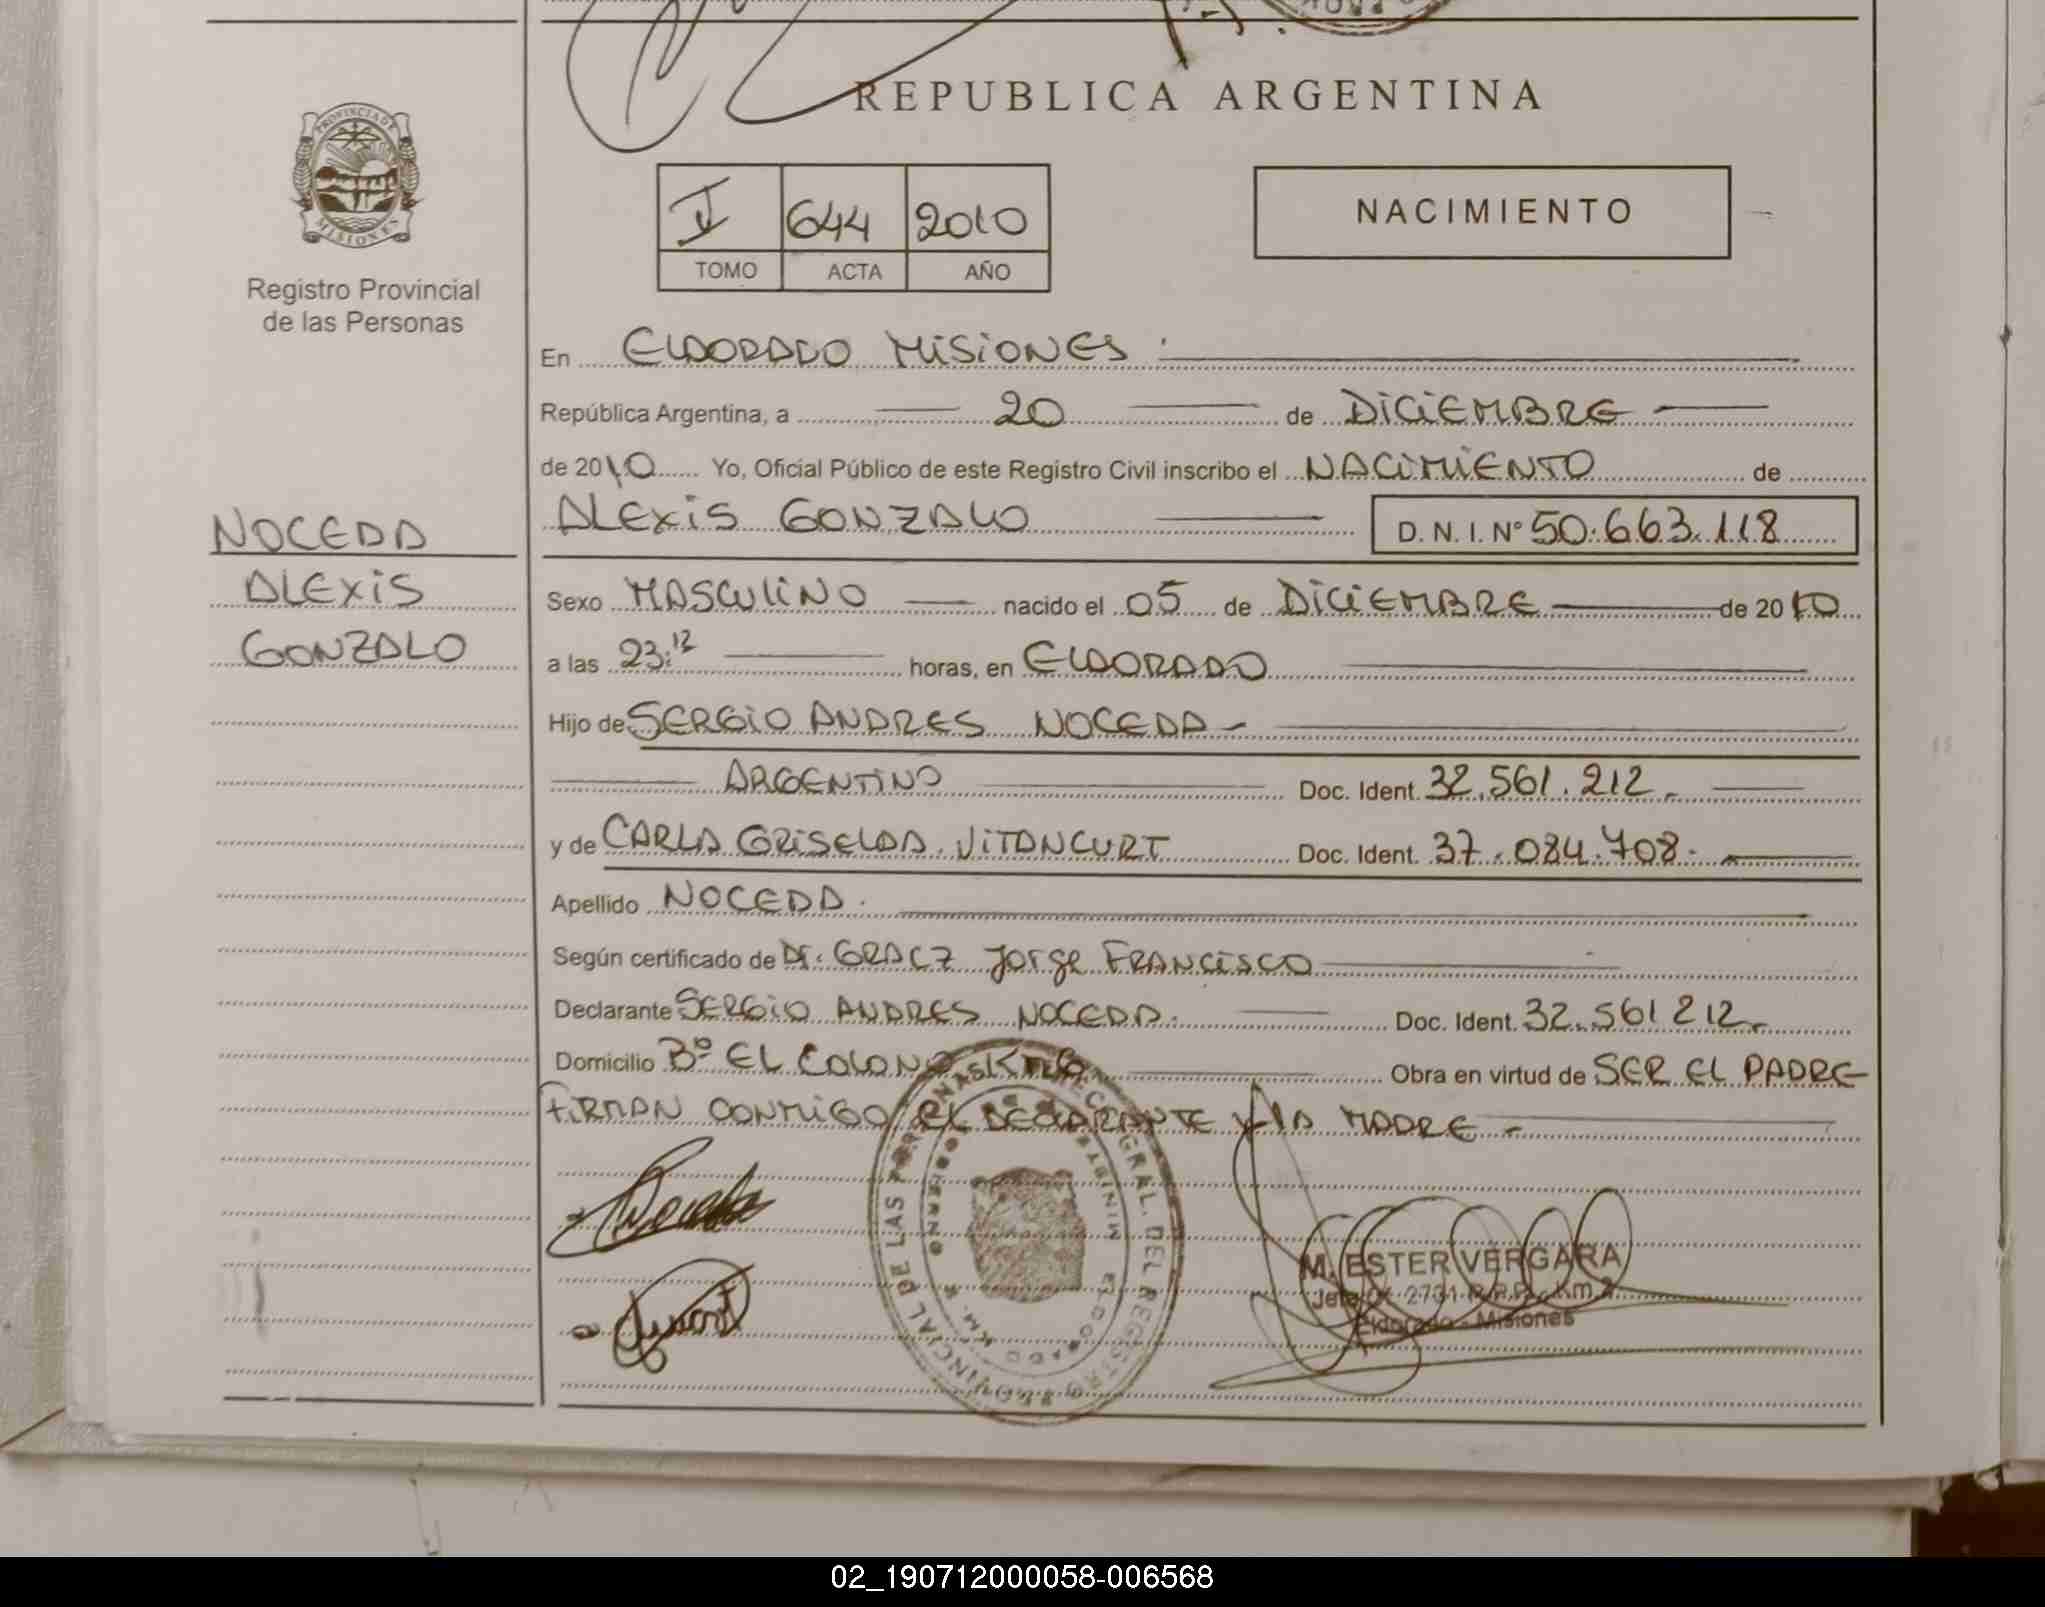 REPUBLICA ARGENTINA
PROVINCIA DE
MISIONES
Registro Provincial
de las Personas
644 2010
TOMO ACTA AÑO
NACIMIENTO
En ELDORADO MISIONES
República Argentina, a 20 de DICIEMBRE
de 2010 Yo, Oficial Público de este Registro Civil inscribo el NACIMIENTO de
ALEXIS GONZALO D. N. I. Nº 50.663.118
NOCEDA
ALEXIS
GONZALO
Sexo MASCULINO nacido el 05 de DICIEMBRE de 2010
a las 23:12 horas, en ELDORADO
Hijo de SERGIO ANDRES NOCEDA
ARGENTINO Doc. Ident. 32.561.212
y de CARLA GRISELDA VITANCURT Doc. Ident. 37.084.708
Apellido NOCEDA
Según certificado de Dr. GRACZ Jorge FRANCISCO
Declarante SERGIO ANDRES NOCEDA Doc. Ident. 32.561212
Domicilio Bº EL COLONO Obra en virtud de SER EL PADRE
FIRMAN CONMIGO EL DECLARANTE Y LA MADRE
M. ESTER VERGARA
2731 R.P.P. Km.2
Eldorado - Misiones
02_190712000058-006568